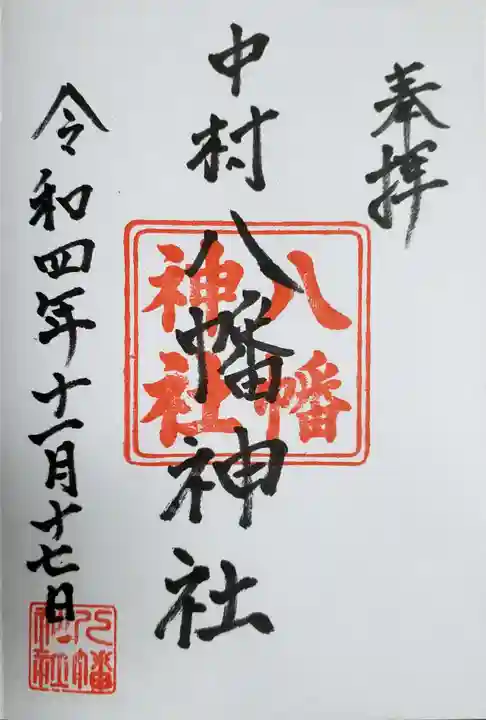 奉拝
中村
八幡神社
八幡
神社
令和四年十一月十七日
八幡
神社